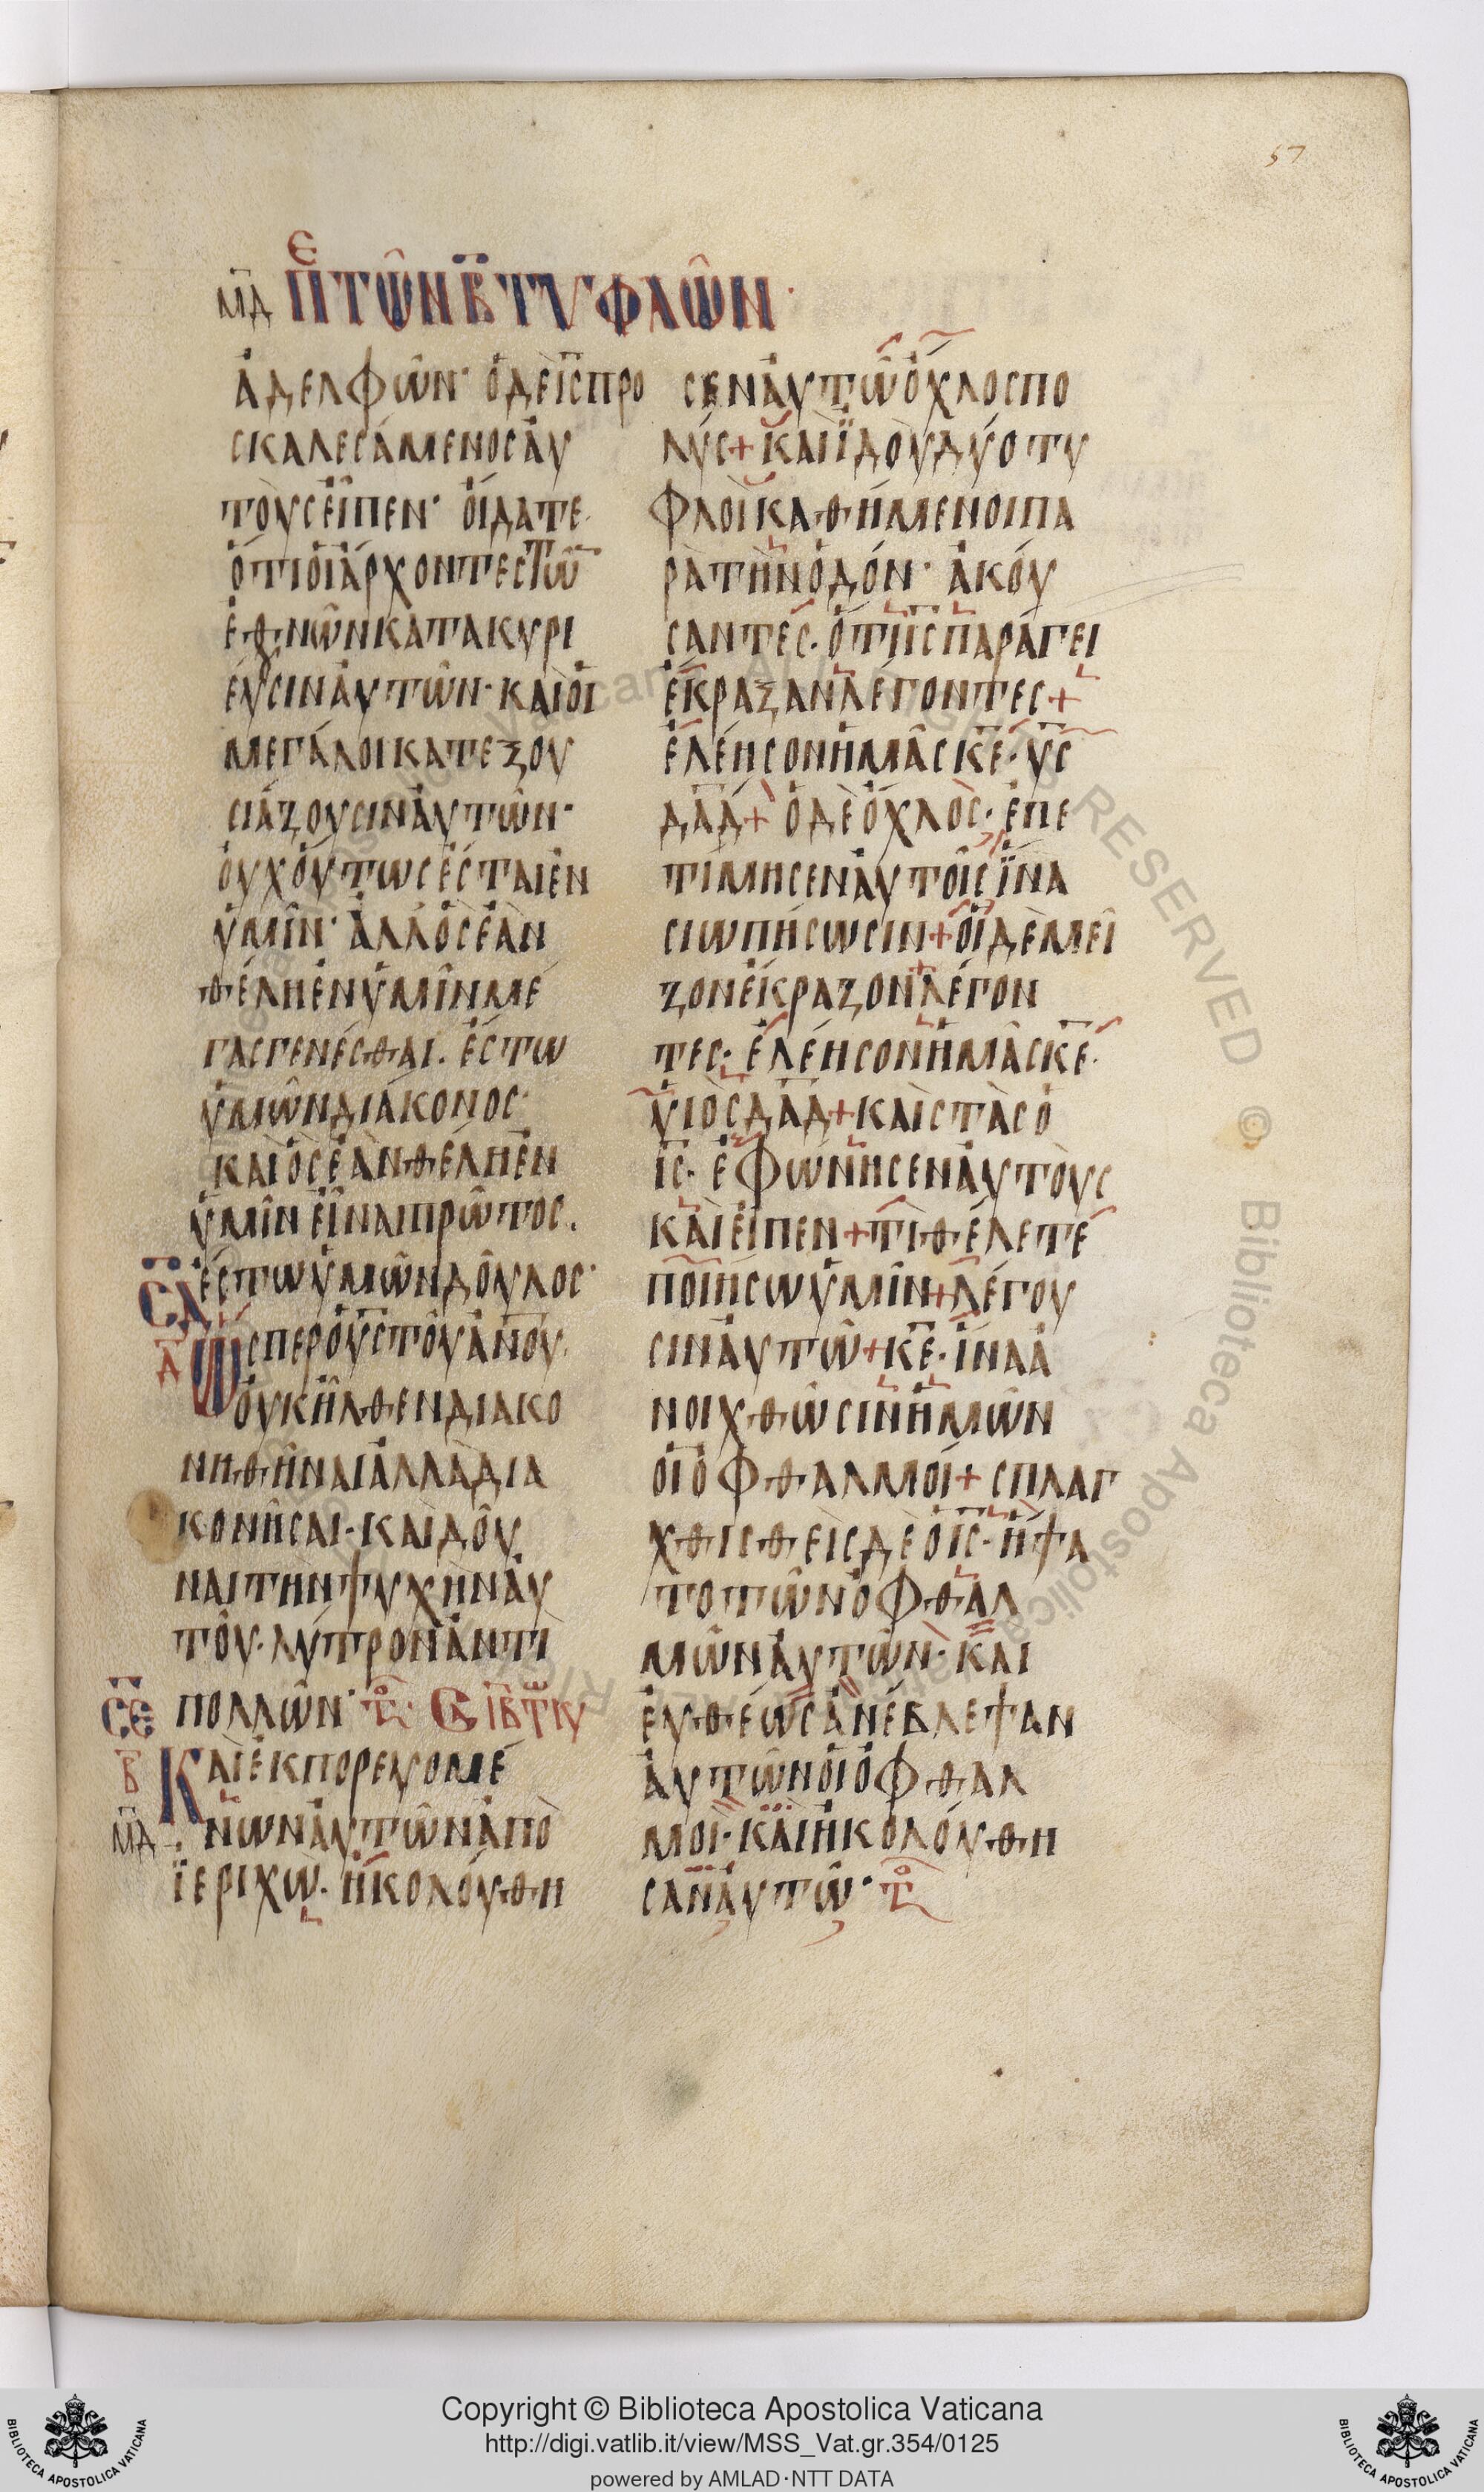 57
ΜΔ ΠΕ ΤΩΝ Β ΤΥΦΛΩΝ
ἀδελφῶν· ὁ δὲ ῑς̄ προ
σκαλεσάμενος αὐ
τοὺς εἶπεν· οἴδατε
ὅτι οἱ ἄρχοντες τῶ̅
ἐθνῶν κατακυρι
εύσιν αὐτῶν· καὶ οἱ
μεγάλοι κατεξου
σιάζουσιν αὐτῶν·
οὐχ οὕτως ἔσται ἐν
ὑμῖν· ἀλλ' ὃς ἐὰν
θέλη ἐν ὑμῖν μέ
γας γενέσθαι. ἔστω
ὑμῶν διάκονος·
καὶ ὃς ἐὰν θέλη ἐν
ὑμῖν εἶναι πρῶτος.
ΣΔ ἔστω ὑμῶν δοῦλος·
Α Ὥσπερ ὁ ῡς̄ τοῦ ἀν̅ο̅υ̅.
οὐκ ἦλθεν διακο
νηθῆναι ἀλλὰ δια
κονῆσαι· καὶ δοῦ
ναι τὴν ψυχὴν αὐ
τοῦ· λύτρον ἀντὶ
ΣΕ πολλῶν·
Β Καὶ ἐκπορευομέ
ΜΔ νων αὐτῶν ἀπὸ
ϊεριχώ· ἠκολούθη
σεν αὐτῶ ὄχλος πο
λύς + καὶ ϊδοὺ δύο τυ
φλοὶ καθήμενοι πα
ρὰ τὴν ὁδόν· ἀκού
σαντες· ὅτι ῑς̄ παράγει
ἔκραξαν λέγοντες +
ἐλέησον ἡμᾶς κ̅ε̅· ῡς̄
δ̅α̅δ̅ + ὁ δὲ ὄχλος· ἐπε
τίμησεν αὐτοῖς ἵνα
σιωπήσωσιν + οἱ δὲ μεῖ
ζον ἔκραζον λέγον
τες· ἐλέησον ἡμᾶς κ̅ε̅·
ὑιὸς δ̅α̅δ̅ + καὶ στὰς ὁ
ῑς̄· ἐφώνησεν αὐτοὺς
καὶ εἶπεν + τί θέλετε
ποιήσω ὑμῖν + λέγου
σιν αὐτῶ + κ̅ε̅· ἵνα ἀ
νοιχθῶσιν ἡμῶν
οἱ ὀφθαλμοί + σπλαγ
χθισθεὶς δὲ ὁ ῑς̄· ἥψα
το τῶν ὀφθαλ
μῶν αὐτῶν· καὶ
εὐθέως ἀνέβλεψαν
αὐτῶν οἱ ὀφθαλ
μοί· καὶ ἠκολούθη
σαν αὐτῶ·
Copyright © Biblioteca Apostolica Vaticana
http://digi.vatlib.it/view/MSS_Vat.gr.354/0125
powered by AMLAD·NTT DATA